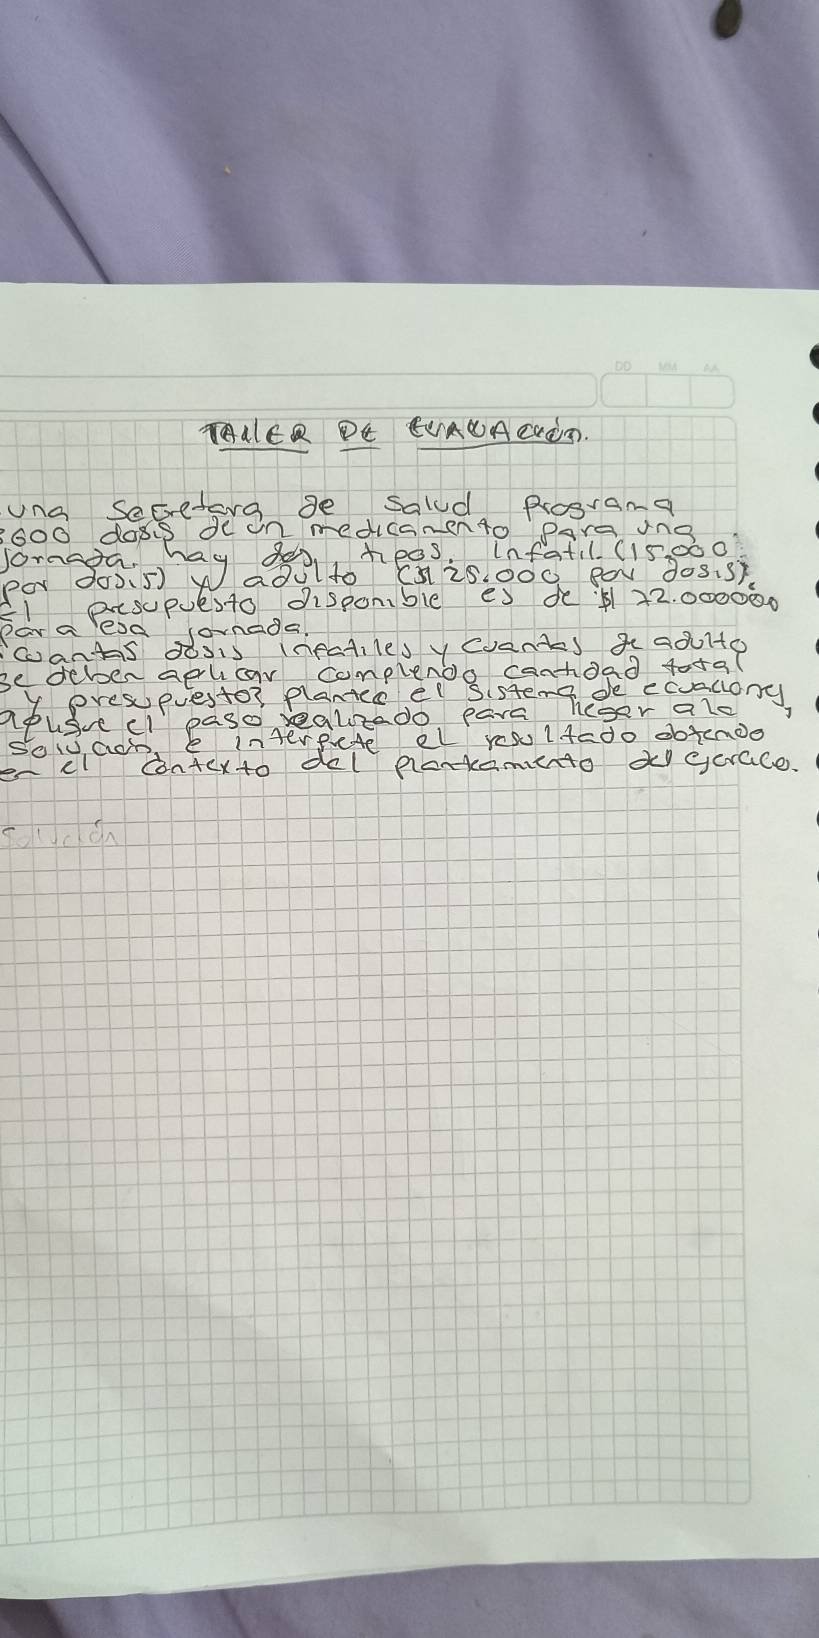 DD MM AA
TAllER DE EVALUACIÓn.
una Secretara de salud Programa
3600 dosis de un medicamento para una
Jornada. hay dos tipos. infatil ($15.000
por dosis) y adulto ($ 25.000 por dosis).
El presupuesto disponible es de $ 72.000000
para esa jornada.
cuantas dosis infatiles y cuantas de adulto
se deben aplicar compliendo cantidad total
y presupuesto? plantee el sistema de ecuaciones,
aplique el paso realizado para llegar a la
solución, e interprete el resultado obtenido
en el contexto del planteamiento del ejercicio.
Solución